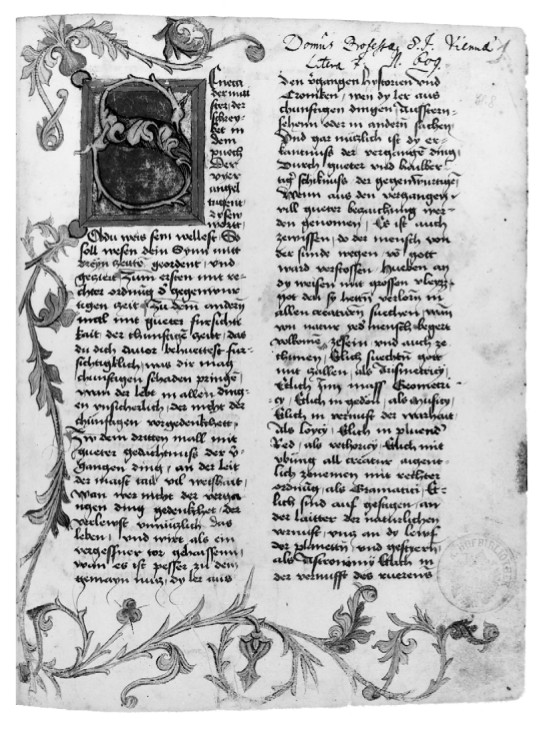 Domus Professa S. J. Vienna
Seneca
der mai
ster der
schrey
bet in
dem
puech
Der
vyer
angel
tugent
dysew
wort
Ob du weis sein wellest So
soll wesen dein Synn mitt
dreyn zeite geordent und
geziert Zum ersten mit re
chter ordnug d gegenwur
tigen zeit Zu dem andern
mal mit gueter fursichti
kait der chunftige zeit das
du dich davor behuetest fur
sichtigklich was dir mag
chunftigen schaden pringe
wan der lebt in allen ding
en unsicherlich der nicht der
chunftigen vorgedenkhett
Zw dem dritten mall mit
gueter gedachtnuss der v
gangen ding an der leit
der maist tail vil weishait
Wan wer nicht der verga
ngen ding gedenkhet der
verlewst unnuczlich das
leben und wirt als ein
vergessner tor gehaissenn
wan es ist pesser zu dem
gemayn nucz dy ler aus
den vgangen hystorien und
Croniken wen dy ler aus
chunftigen dingen Ausstern
sehenn oder in andern sachen
Und gar nuczlich ist dy er
kantnuss der vergange ding
Durch gueter und hailber
tig schiknuss der gegenwurtige
Wenn aus den vergangen
vill gueter bezaichnung wer
den genomen Es ist auch
zewissen do der mensch von
der sunde wegen vo gott
ward verstossen Hueben an
dy weisen mit grossen vleyss
got den sy hettn verlorn in
allen creaturn suechen wan
von natur yed mensch begert
volkome zesein und auch ze
chumen Etlich suechtn gott
mit zallen als Arismetrici
Etlich Jnn mass Geometri
cy Etlich in gedon als musicy
Etlich in vernuft der warhait
Als loyci Etlich in pluend
Red als rethorici Etlich mit
ubung all creatur aigent
lich zenemen mit rechter
ordnug als Gramatici Et
lich sind auf gestigen an
der laitter der naturlichen
vernuft uncz an dy lewf
der planetn und gestyern
als Astronomy Etlich in
der vernufft des